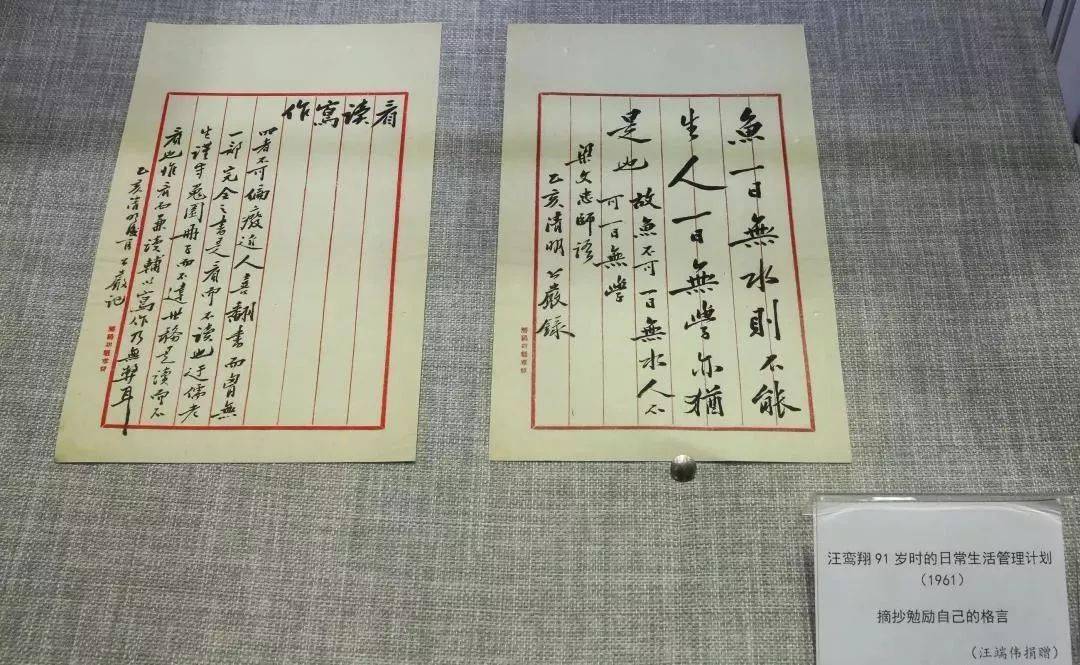 看读寫作
四者不可偏癈近人喜翻書而胷無
一部完全之書是看而不读也迂儒老
生謹守兎園册子而不達世務是读而不
看也惟看而兼读輔以寫作乃無弊耳
乙亥清明公巖记
魚一日無水則不能
生人一日無學亦猶
是也故魚不可一日無水人不
可一日無學
梁文忠師語
乙亥清明公巖錄
汪鸾翔91岁时的日常生活管理计划
（1961）
摘抄勉励自己的格言
（汪端伟捐赠）